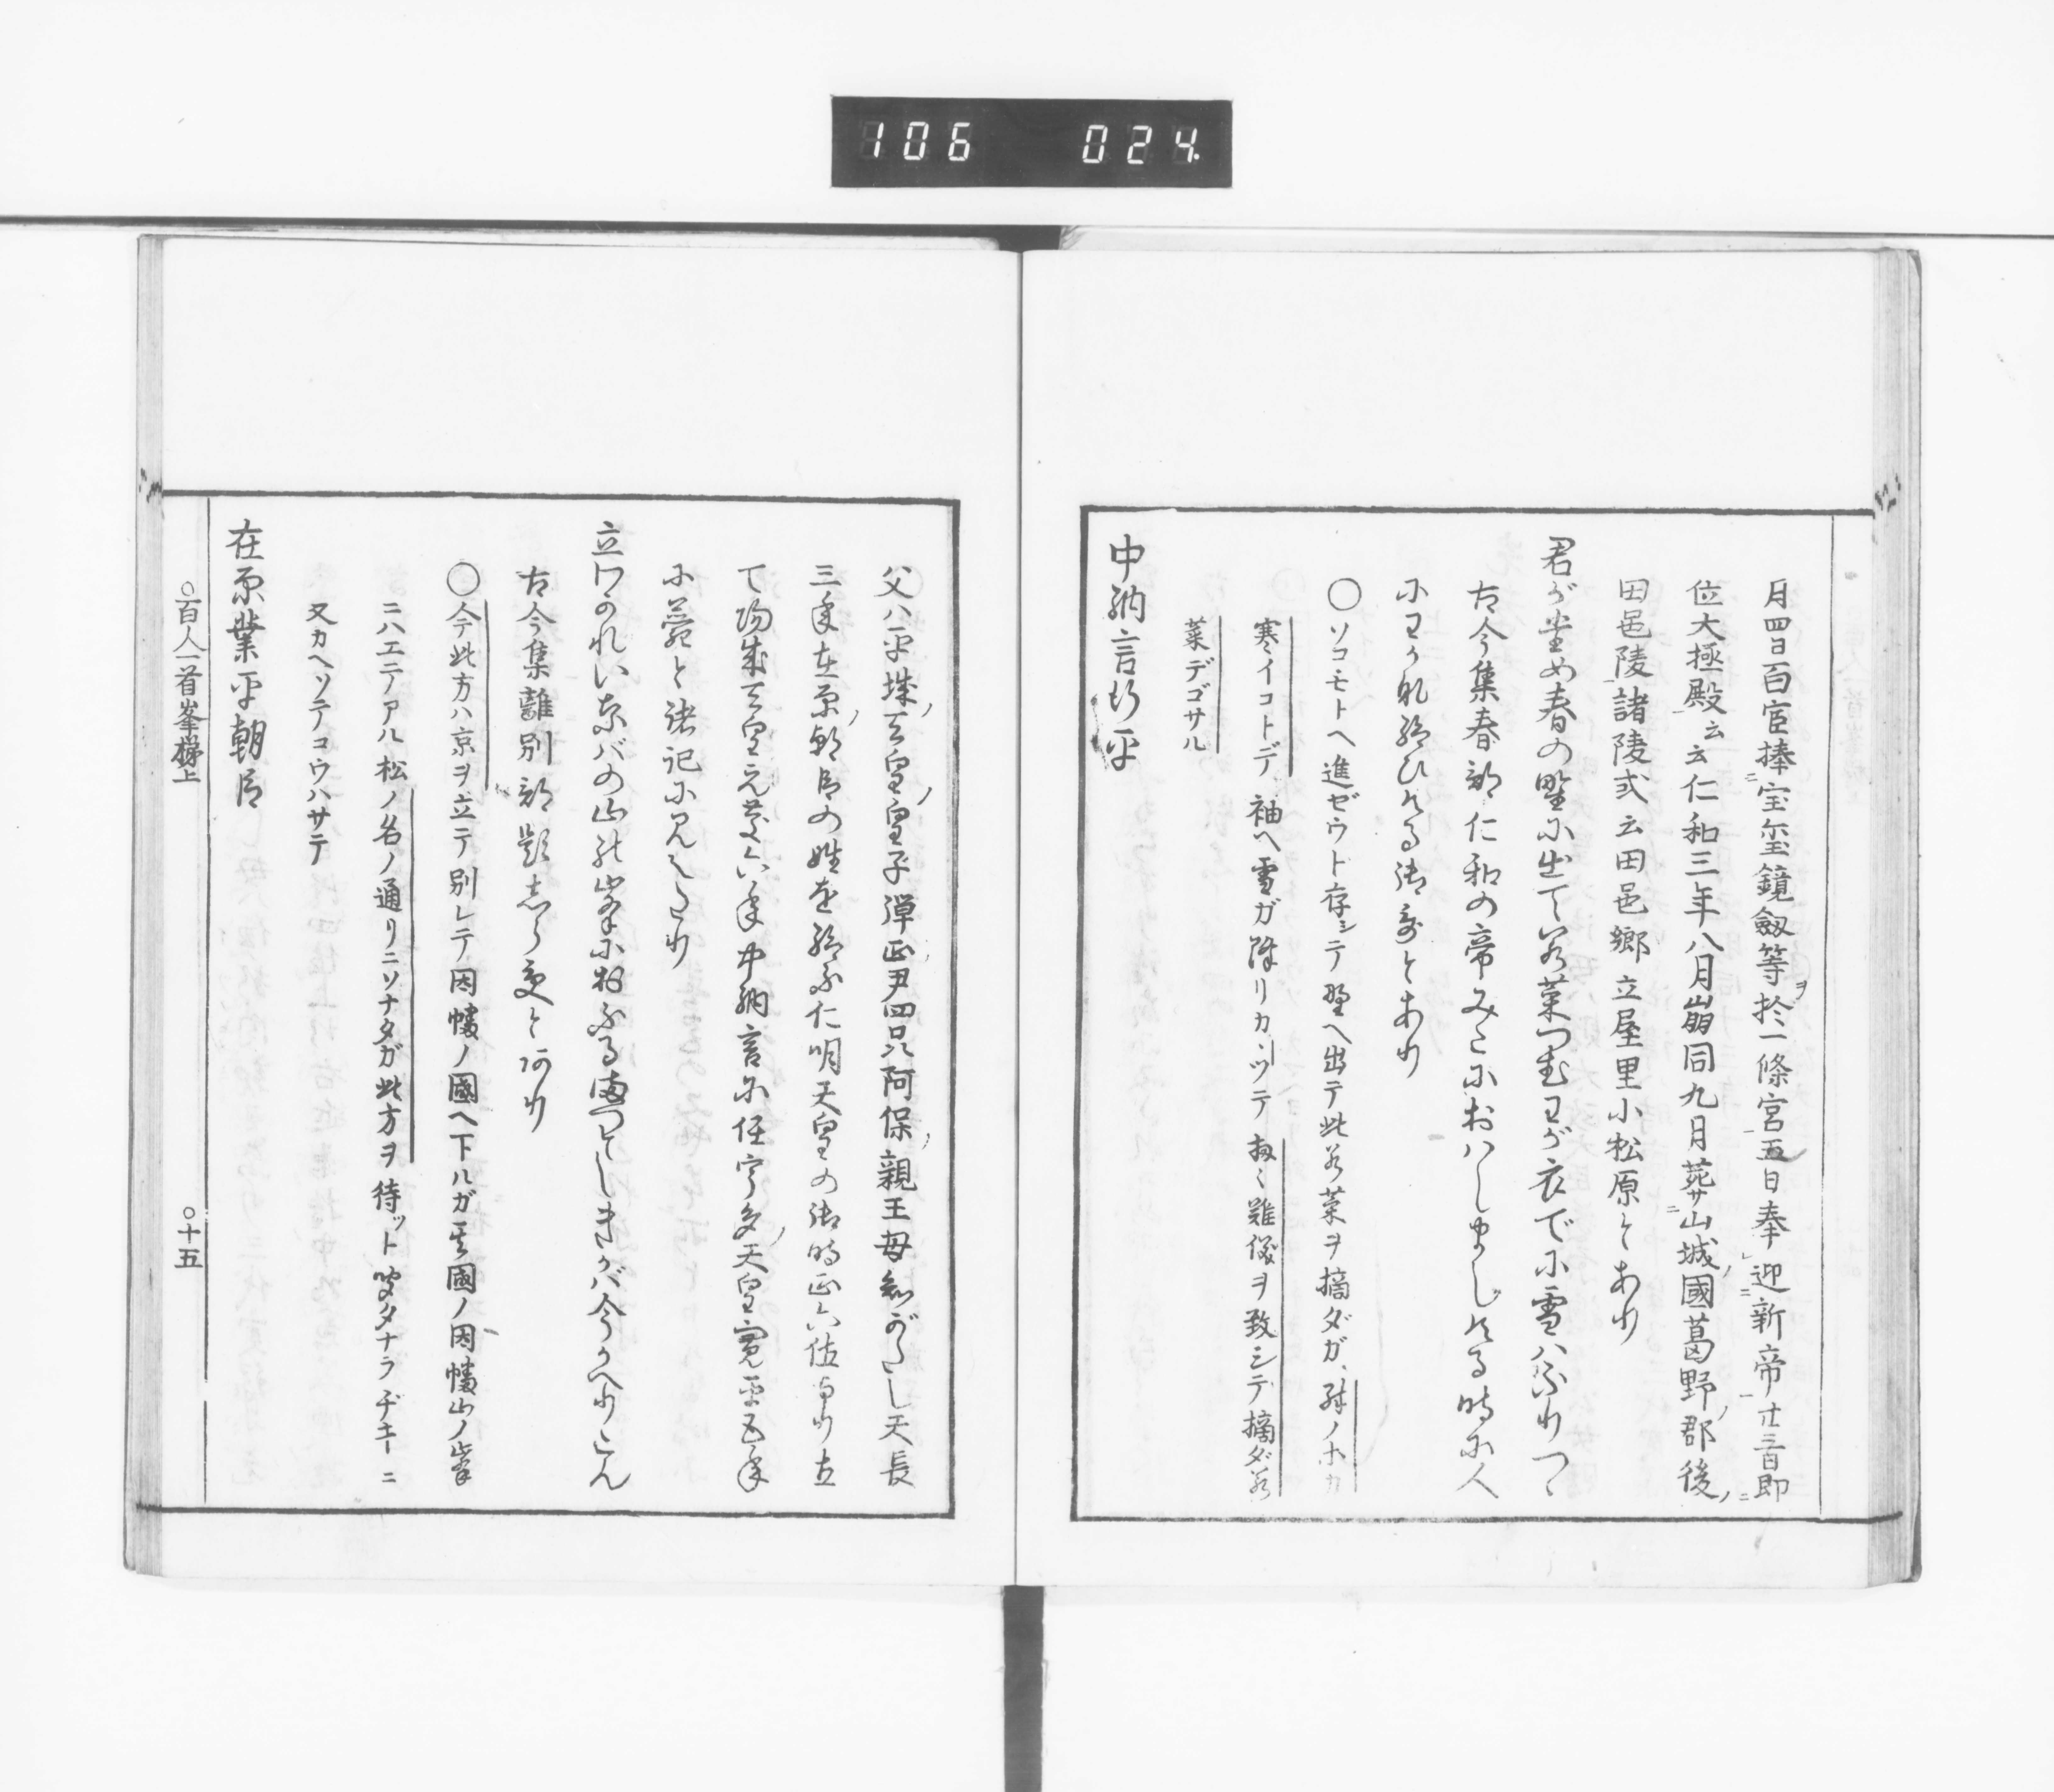 106 024
月四日百官捧宝玺鏡劔等ヲ於二條宮五日奉迎新帝廿三日即
位大極殿云云仁和三年八月崩同九月葬サ山城國葛野郡後
田邑陵諸陵式云田邑郷立屋里小松原とあり
君がため春の野に出て若菜つむわが衣でに雪ハふりつゝ
古今集春部仁和の帝みこにおハしましける時に人
にわか那給ひける御哥とあり
○ソコモトヘ進ゼウト存シテ野ヘ出テ此若菜ヲ摘ダガ、殊ノホカ
寒イコトデ袖ヘ雪ガ降リカヽツテ扨々難儀ヲ致シテ摘ダ若
菜デゴザル
中納言行平
父ハ平城天皇ノ皇子弾正尹四品阿保親王母知がたし天長
三年在原朝臣の姓を給ふ仁明天皇の御時正六位より立
て陽成天皇元慶六年中納言に任宇多天皇寛平五年
に薨と諸記に見えたり
立わかれいなバの山の峯におふる満つとしきかバ今かへりこん
古今集離別部題志らずとあり
○今此方ハ京ヲ立テ別レテ因幡ノ國ヘ下ルガ其國ノ因幡山ノ峯
ニハエテアル松ノ名ノ通リニソナタガ此方ヲ待ット聞タナラヂキニ
又カヘツテコウハサテ
在原業平朝臣
○百人一首峯梯上
○十五